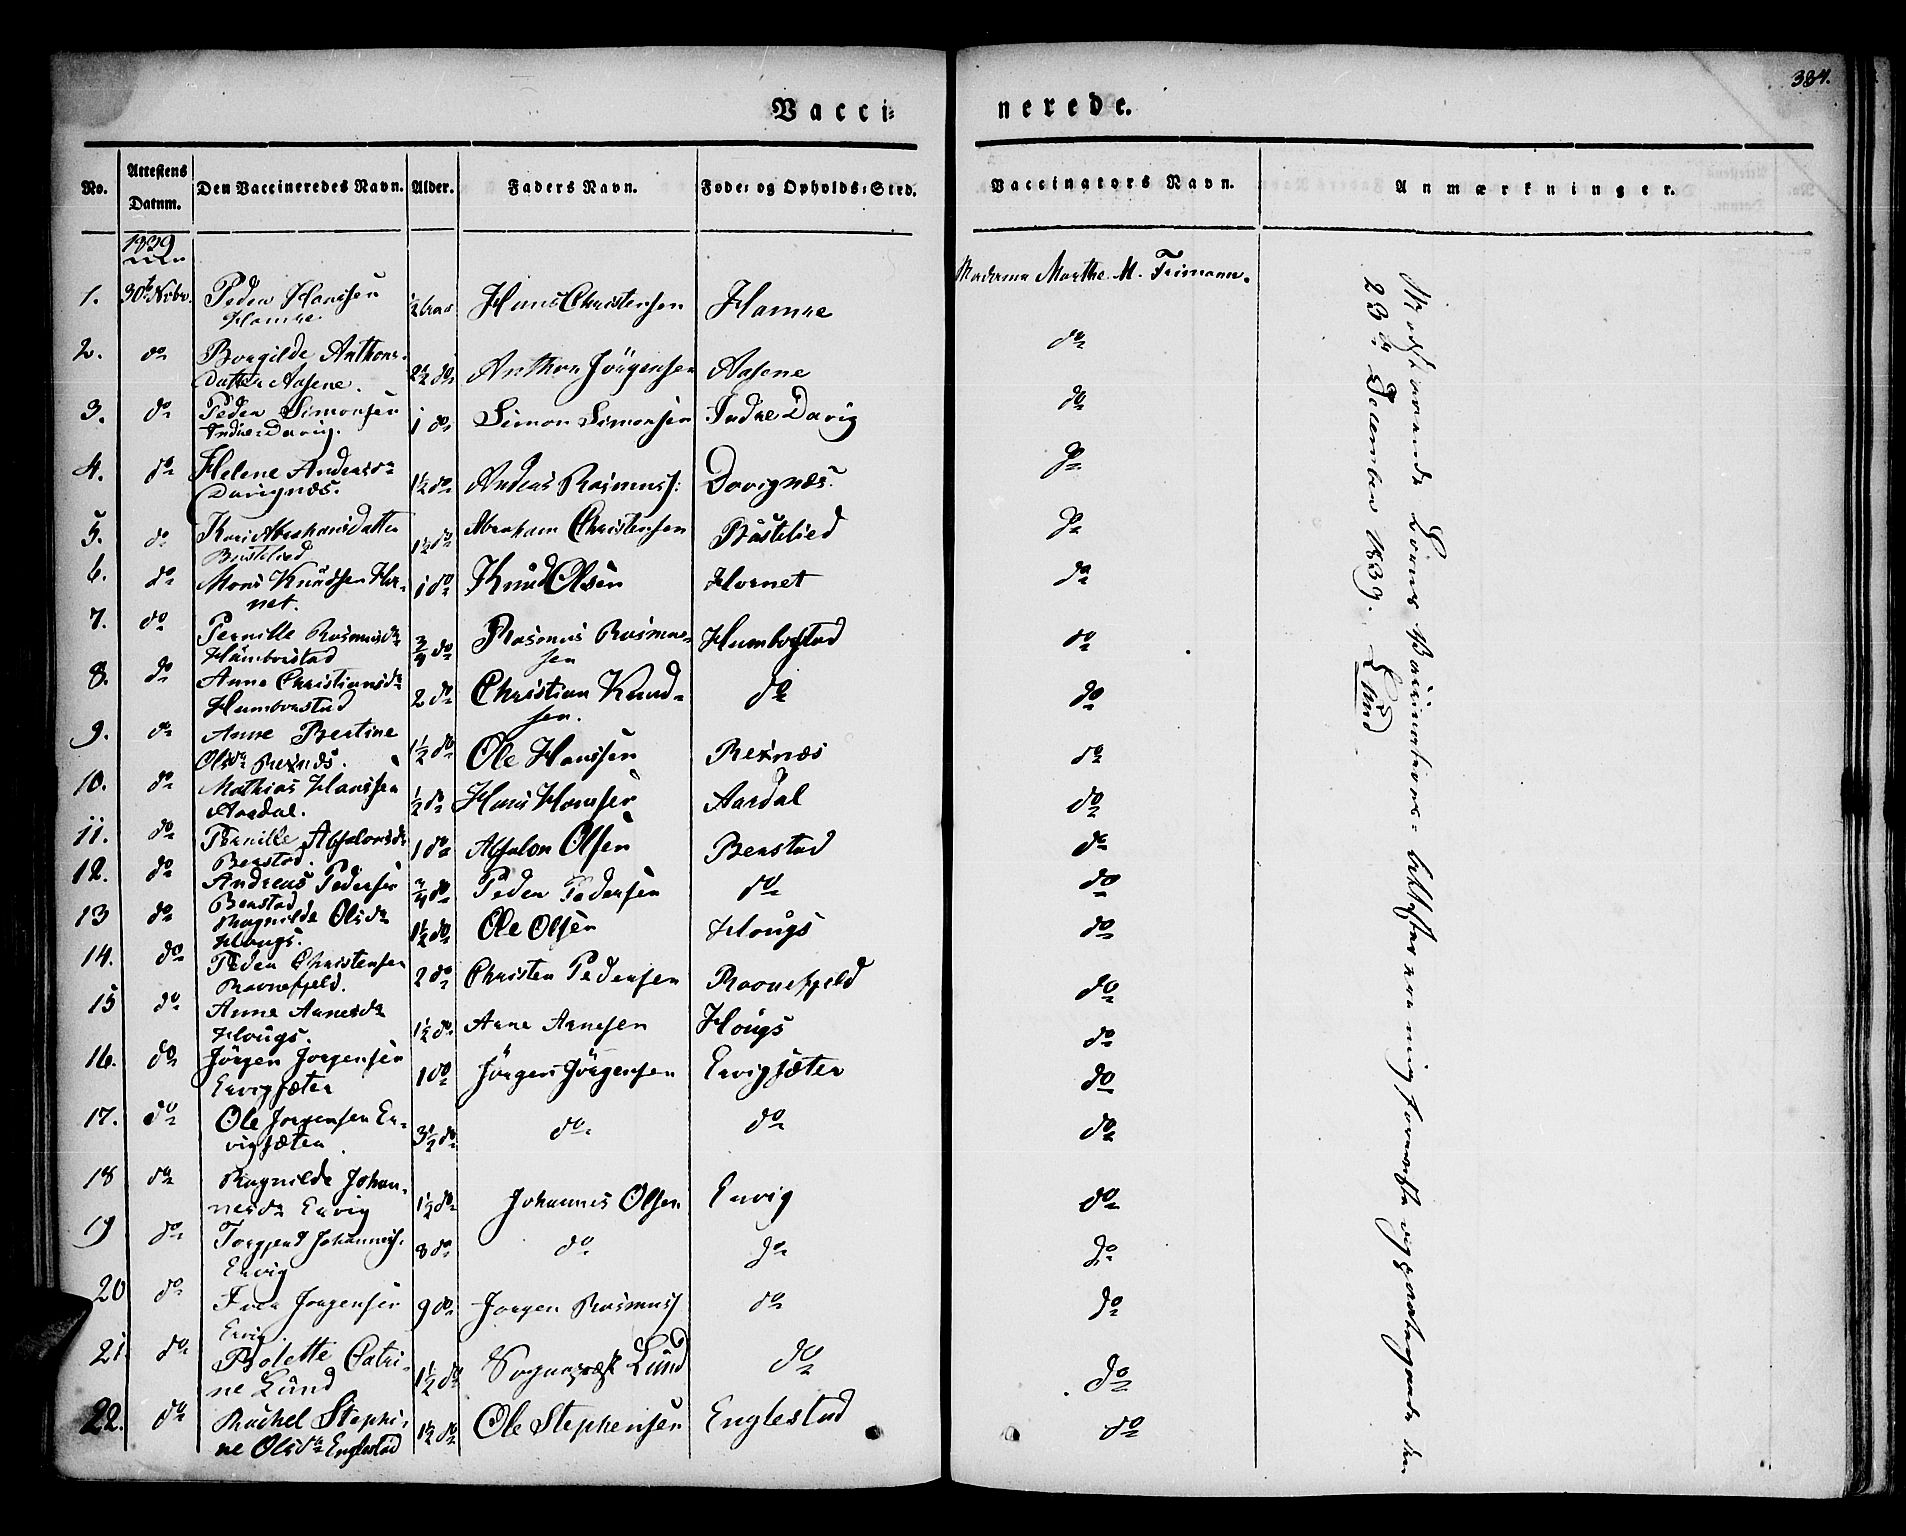 384.
Vacci-nerede.
No. Attestens Datum. Den Vaccineredes Navn. Alder. Faders Navn. Føde- og Opholds-Sted. Vaccinators Navn. Anmærkninger.
1839
1. 30te Novbr. Peder Hanssen Hamre. ½ Aar Hans Christensen Hamre Madame Marthe M. Friman.
2. do Borgilde Anthons-Datter Aasene. 2½ do Anthon Jörgensen Aasene do
3. do Peder Simonsen Indre-Davig. 1 do Simon Simonsen Indre Davig do
4. do Helene Andersdr Davignæs. 1½ do Andreas Rasmuss: Davignæs. do
5. do Kari Abrahamsdatter Bustelied 1½ do Abraham Christensen Bustelied do
6. do Mons Knudsen Hor-net. 1 do Knud Olsen Hornet do
7. do Pernille Rasmusdr Humborstad ¾ do Rasmus Rasmus-sen Humborstad do
8. do Anne Christiansdr Humborstad 2 do Christian Knud-sen. do do
9. do Anne Bertine Olsdr Rexnæs. 1½ do Ole Hanssen Rexnæs do
10. do Mathias Hanssen Aardal. ½ do Hans Hansen Aardal do
11. do Pernille Absalonsdr Berstad. 1 do Absalon Olsen Berstad do
12. do Andreas Pedersen Berstad ¾ do Peder Pedersen do do
13 do Ragnilde Olsdr Hougs. 1½ do Ole Olsen Hougs do
14. do Peder Christensen Ravnefjeld. 2 do Christen Pedersen Ravnefjeld do
15 do Anne Arnesdr Hougs. 1½ do Arne Arnesen Hougs do
16. do Jörgen Jorgensen Ervigsæter 1 do Jörgen Jörgensen Ervigsæter do
17. do Ole Jorgensen Er-vigsæter 3½ do do do do
18 do Ragnilde Johan-nesdr Ervig 1½ do Johannes Olsen Ervig do
19 do Johanness. Ervig 8 do do do do
20 do Iver Jorgensen Ervig 9 do Jorgen Rasmuss do do
21. do Bolette Catri-ne Lund 1½ do Sognepræst Lund do do
22. do Rachel Stephi-ne Olsdr Englestad 1½ do Ole Stephensen Englestad do
Börns Vaccination bekræfter den
23de December 1839. Lund